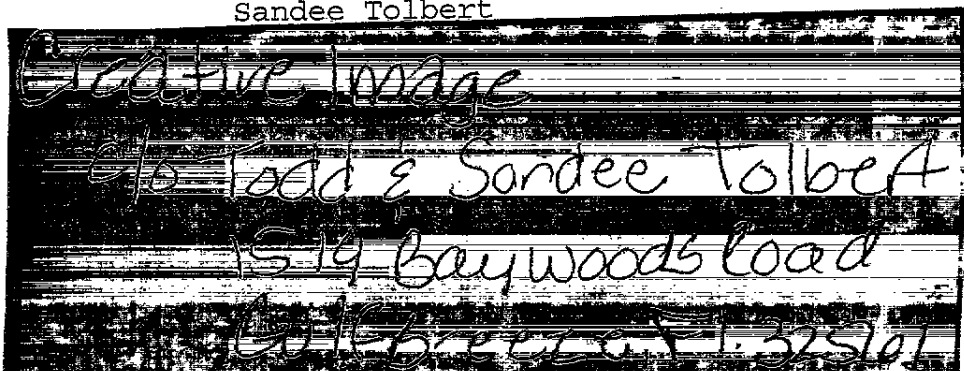 Sandee Tolbert
Creative Image
c/o Todd & Sandee Tolbert
1519 Baywoods Road
Gulf Breeze, Fl.